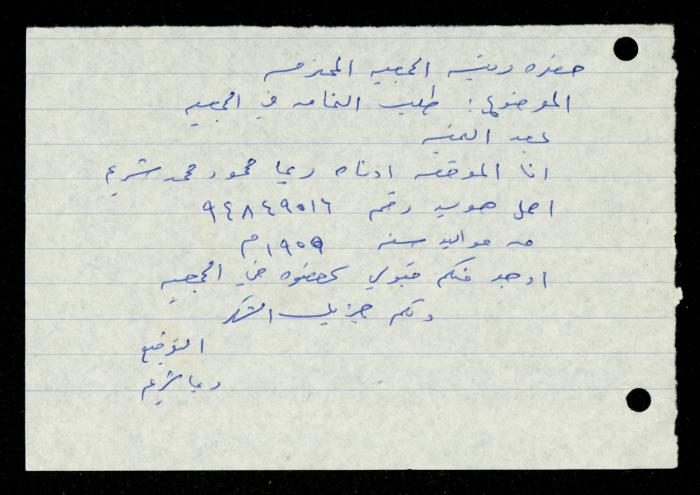 حضرة رئيسة الجمعيه المحترمه
الموضوع: طلب انتساب في الجمعيه
بعد التحيه
انا الموقعه ادناه ريما محمود محمد شريم
احمل هويه رقم ٩٤٨٤٩٥١٦
من مواليد سنه ١٩٥٩م
ارجو منكم قبولي كعضوه في الجمعيه
ولكم جزيل الشكر
التوقيع
ريما شريم